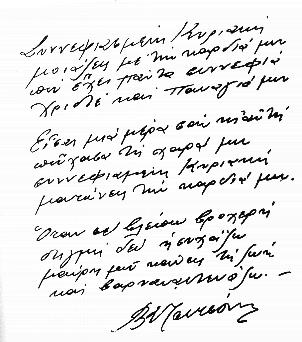 Συννεφιασμένη Κυριακή
μοιάζεις με την καρδιά μου
που έχει πάντα συννεφιά
Χριστέ και Παναγιά μου
Είσαι μια μέρα σαν κι αυτή
που 'χασα τη χαρά μου
συννεφιασμένη Κυριακή
ματώνεις την καρδιά μου.
Όταν σε βλέπω βροχερή
στιγμή δεν ησυχάζω
μαύρη μου κάνεις τη ζωή
και βαρυαναστενάζω. —
Β Τσιτσάνης